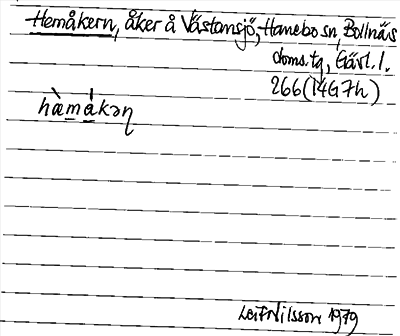 Hemåkern, åker å Västansjö, Hanebo sn, Bollnäs
doms.tg, Gävl. l.
266 (14G7h)
hæ̀mákəɳ
Leif Nilsson 1979